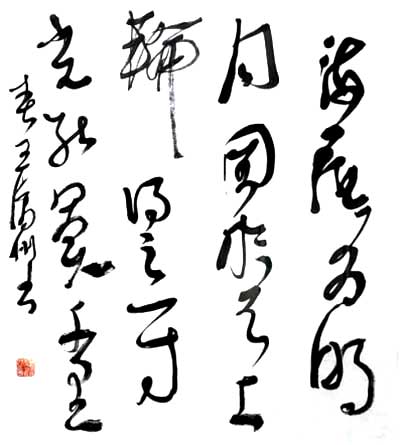 海底有明
月圓於天上
輪得之一寸
光能買千里
春 王 州书